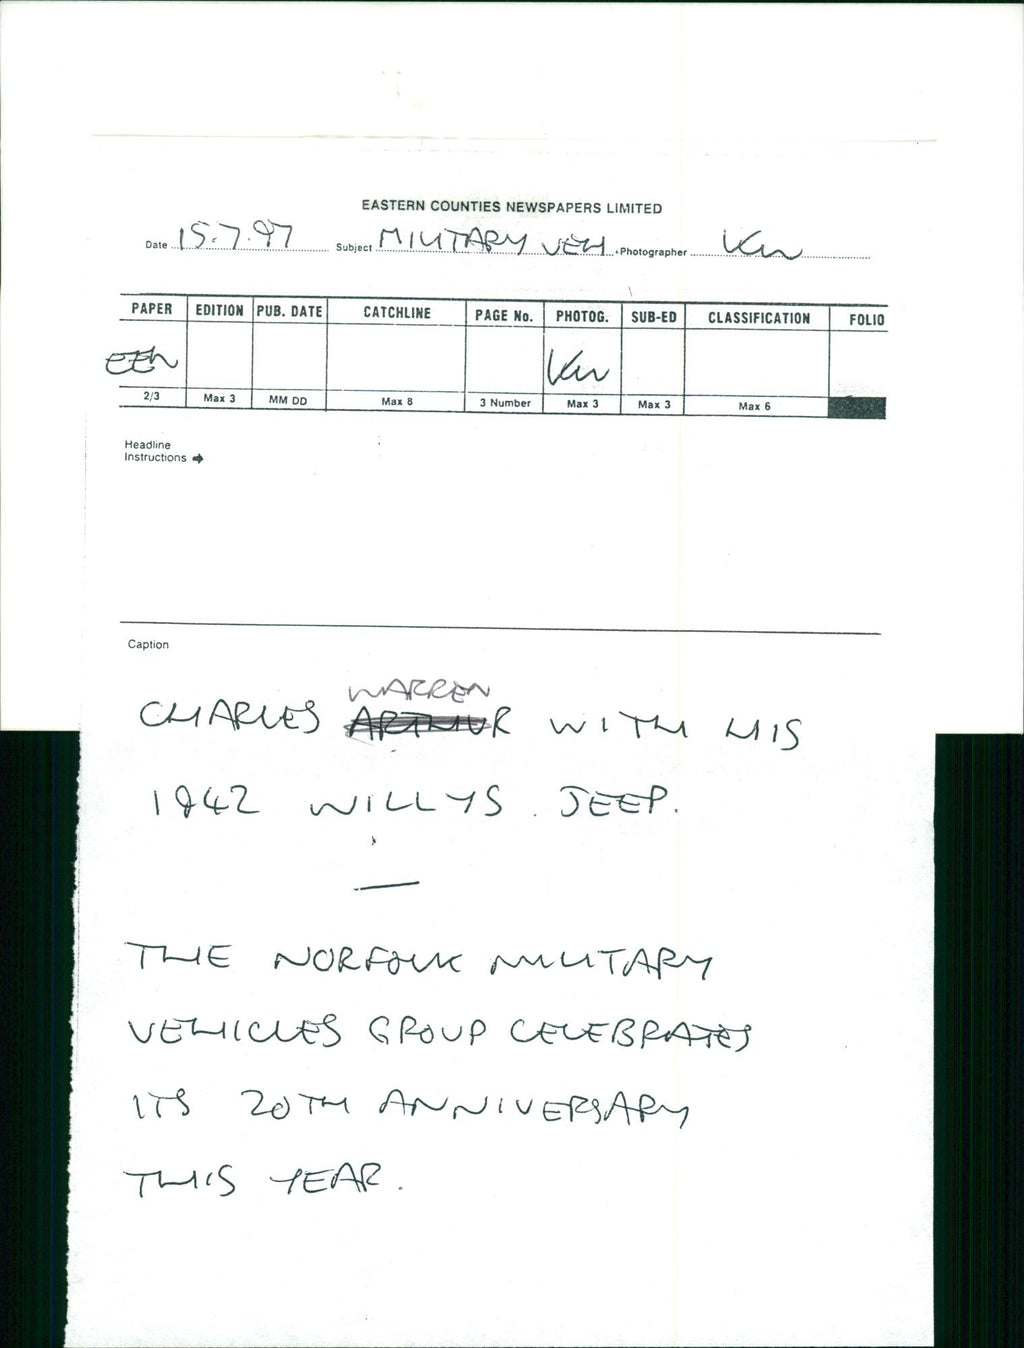 EASTERN COUNTIES NEWSPAPERS LIMITED
Date 15.7.97 Subject MILITARY VEH. Photographer KW
PAPER EDITION PUB. DATE CATCHLINE PAGE No. PHOTOG. SUB-ED CLASSIFICATION FOLIO
EEN KW
2/3 Max 3 MM DD Max 8 3 Number Max 3 Max 3 Max 6
Headline
Instructions →
Caption
WARREN
CHARLES ARTHUR WITH HIS
1942 WILLYS JEEP.
THE NORFOLK MILITARY
VEHICLES GROUP CELEBRATES
ITS 20TH ANNIVERSARY
THIS YEAR.